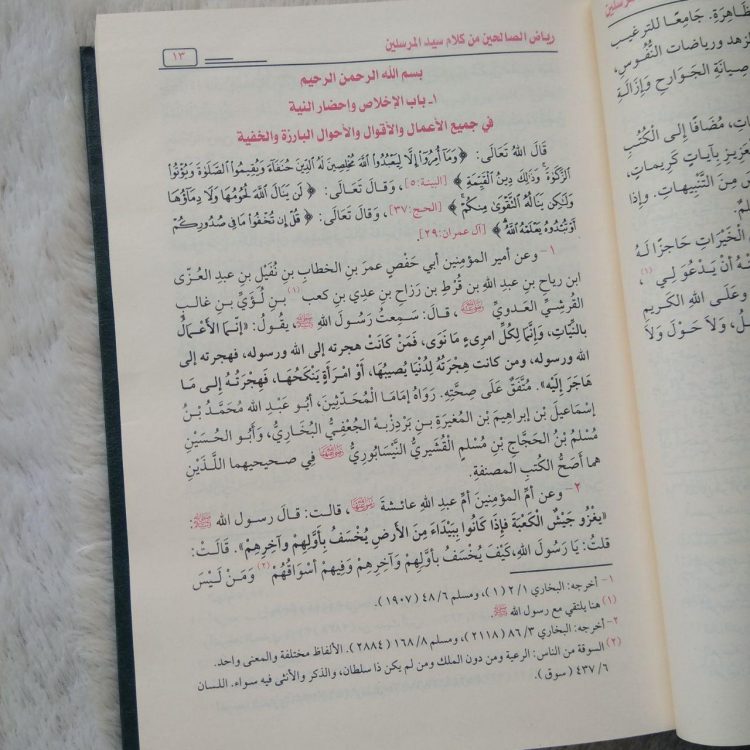 رياض الصالحين من كلام سيد المرسلين
١٣
بسم الله الرحمن الرحيم
١ـ باب الإخلاص وإحضار النية
في جميع الأعمال والأقوال والأحوال البارزة والخفية
قَالَ اللهُ تَعَالَى: ﴿ وَمَآ أُمِرُوٓا۟ إِلَّا لِيَعْبُدُوا۟ ٱللَّهَ مُخْلِصِينَ لَهُ ٱلدِّينَ حُنَفَآءَ وَيُقِيمُوا۟ ٱلصَّلَوٰةَ وَيُؤْتُوا۟
ٱلزَّكَوٰةَ وَذَٰلِكَ دِينُ ٱلْقَيِّمَةِ ﴾ [البينة:٥]، وَقَالَ تَعَالَى: ﴿ لَن يَنَالَ ٱللَّهَ لُحُومُهَا وَلَا دِمَآؤُهَا
وَلَٰكِن يَنَالُهُ ٱلتَّقْوَىٰ مِنكُمْ ﴾ [الحج:٣٧]، وَقَالَ تَعَالَى: ﴿ قُلْ إِن تُخْفُوا۟ مَا فِى صُدُورِكُمْ
أَوْ تُبْدُوهُ يَعْلَمْهُ ٱللَّهُ ﴾ [آل عمران:٢٩].
١- وعن أمير المؤمنين أبي حَفْصٍ عمرَ بنِ الخطابِ بنِ نُفَيْلِ بنِ عبدِ العُزَّى
ابن رياح بنِ عبدِ اللهِ بنِ قُرْطِ بنِ رَزَاحِ بنِ عدي بنِ كعب (١) بنِ لُؤَيِّ بنِ غالبٍ
القُرشِيِّ العدويِّ رضي الله عنه، قالَ: سَمِعتُ رَسُولَ اللهِ ﷺ، يقُولُ: «إنّما الأَعْمالُ
بالنِّيّاتِ، وَإنَّمَا لِكُلِّ امرِىءٍ مَا نَوَى، فَمَنْ كَانَتْ هجرته إلى الله ورسوله، فهجرته إلى
الله ورسوله، ومن كانت هِجْرَتُهُ لِدُنْيَا يُصيبُهَا، أَوْ امْرَأَةٍ يَنْكَحُهَا، فَهِجْرَتُهُ إلى مَا
هَاجَرَ إِلَيْهِ». مُتَّفَقٌ عَلَى صِحَّتِهِ. رَوَاهُ إمَامَا الْمُحَدِّثِينَ، أبُو عَبْدِ الله مُحَمَّدُ بْنُ
إسْمَاعيلَ بْن إبراهِيمَ بْن المُغيرَةِ بنِ بَرْدِزْبهْ الجُعْفِيُّ البُخَارِيُّ، وَأبُو الحُسَيْنِ
مُسْلمُ بْنُ الحَجَّاجِ بْنِ مُسْلمٍ القُشَيريُّ النَّيْسَابُوريُّ رضي الله عنهما فِي صحيحيهما اللَّذَيْنِ
هما أَصَحُّ الكُتبِ المصنفةِ.
٢- وعن أمِّ المؤمِنينَ أمِّ عبدِ اللهِ عائشةَ رضي الله عنها، قالت: قالَ رسول الله ﷺ:
«يغْزُو جَيْشٌ الْكَعْبَةَ فَإِذَا كَانُوا بِبَيْدَاءَ مِنَ الأَرضِ يُخْسَفُ بِأَوَّلِهِمْ وآخِرِهِمْ». قَالَتْ:
قلتُ: يَا رَسُولَ اللهِ، كَيْفَ يُخْسَفُ بأوَّلِهِمْ وَآخِرِهِمْ وَفِيهِمْ أسْوَاقُهُمْ (٢) وَمَنْ لَيْسَ
١- أخرجه: البخاري ٢/١ (١)، ومسلم ٤٨/٦ (١٩٠٧).
(١) هنا يلتقي مع رسول الله ﷺ.
٢- أخرجه: البخاري ٨٦/٣ (٢١١٨)، ومسلم ١٦٨/٨ (٢٨٨٤). الألفاظ مختلفة والمعنى واحد.
(٢) السوقة من الناس: الرعية ومن دون الملك ومن لم يكن ذا سلطان، والذكر والأنثى فيه سواء. اللسان
٤٣٧/٦ (سوق).
المرسلين
ظَاهِرَةِ. جَامِعًا للترغيب
لزهد ورياضات النُّفُوسِ،
صِيانَةِ الجَوَارحِ وَإزَالَةِ
اتِ، مُضَافًا إلى الْكُتُبِ
لعَزِيزِ بآياتٍ كَرِيماتٍ،
سَ مِنَ التَّنْبِيهاتِ. وإذا
لْخَيْرَاتِ حَاجزًا لَهُ
أنْ يَدْعُوَ لِي (١)،
وعَلَى اللهِ الكَريمِ
وَلاَ حَوْلَ وَلاَ